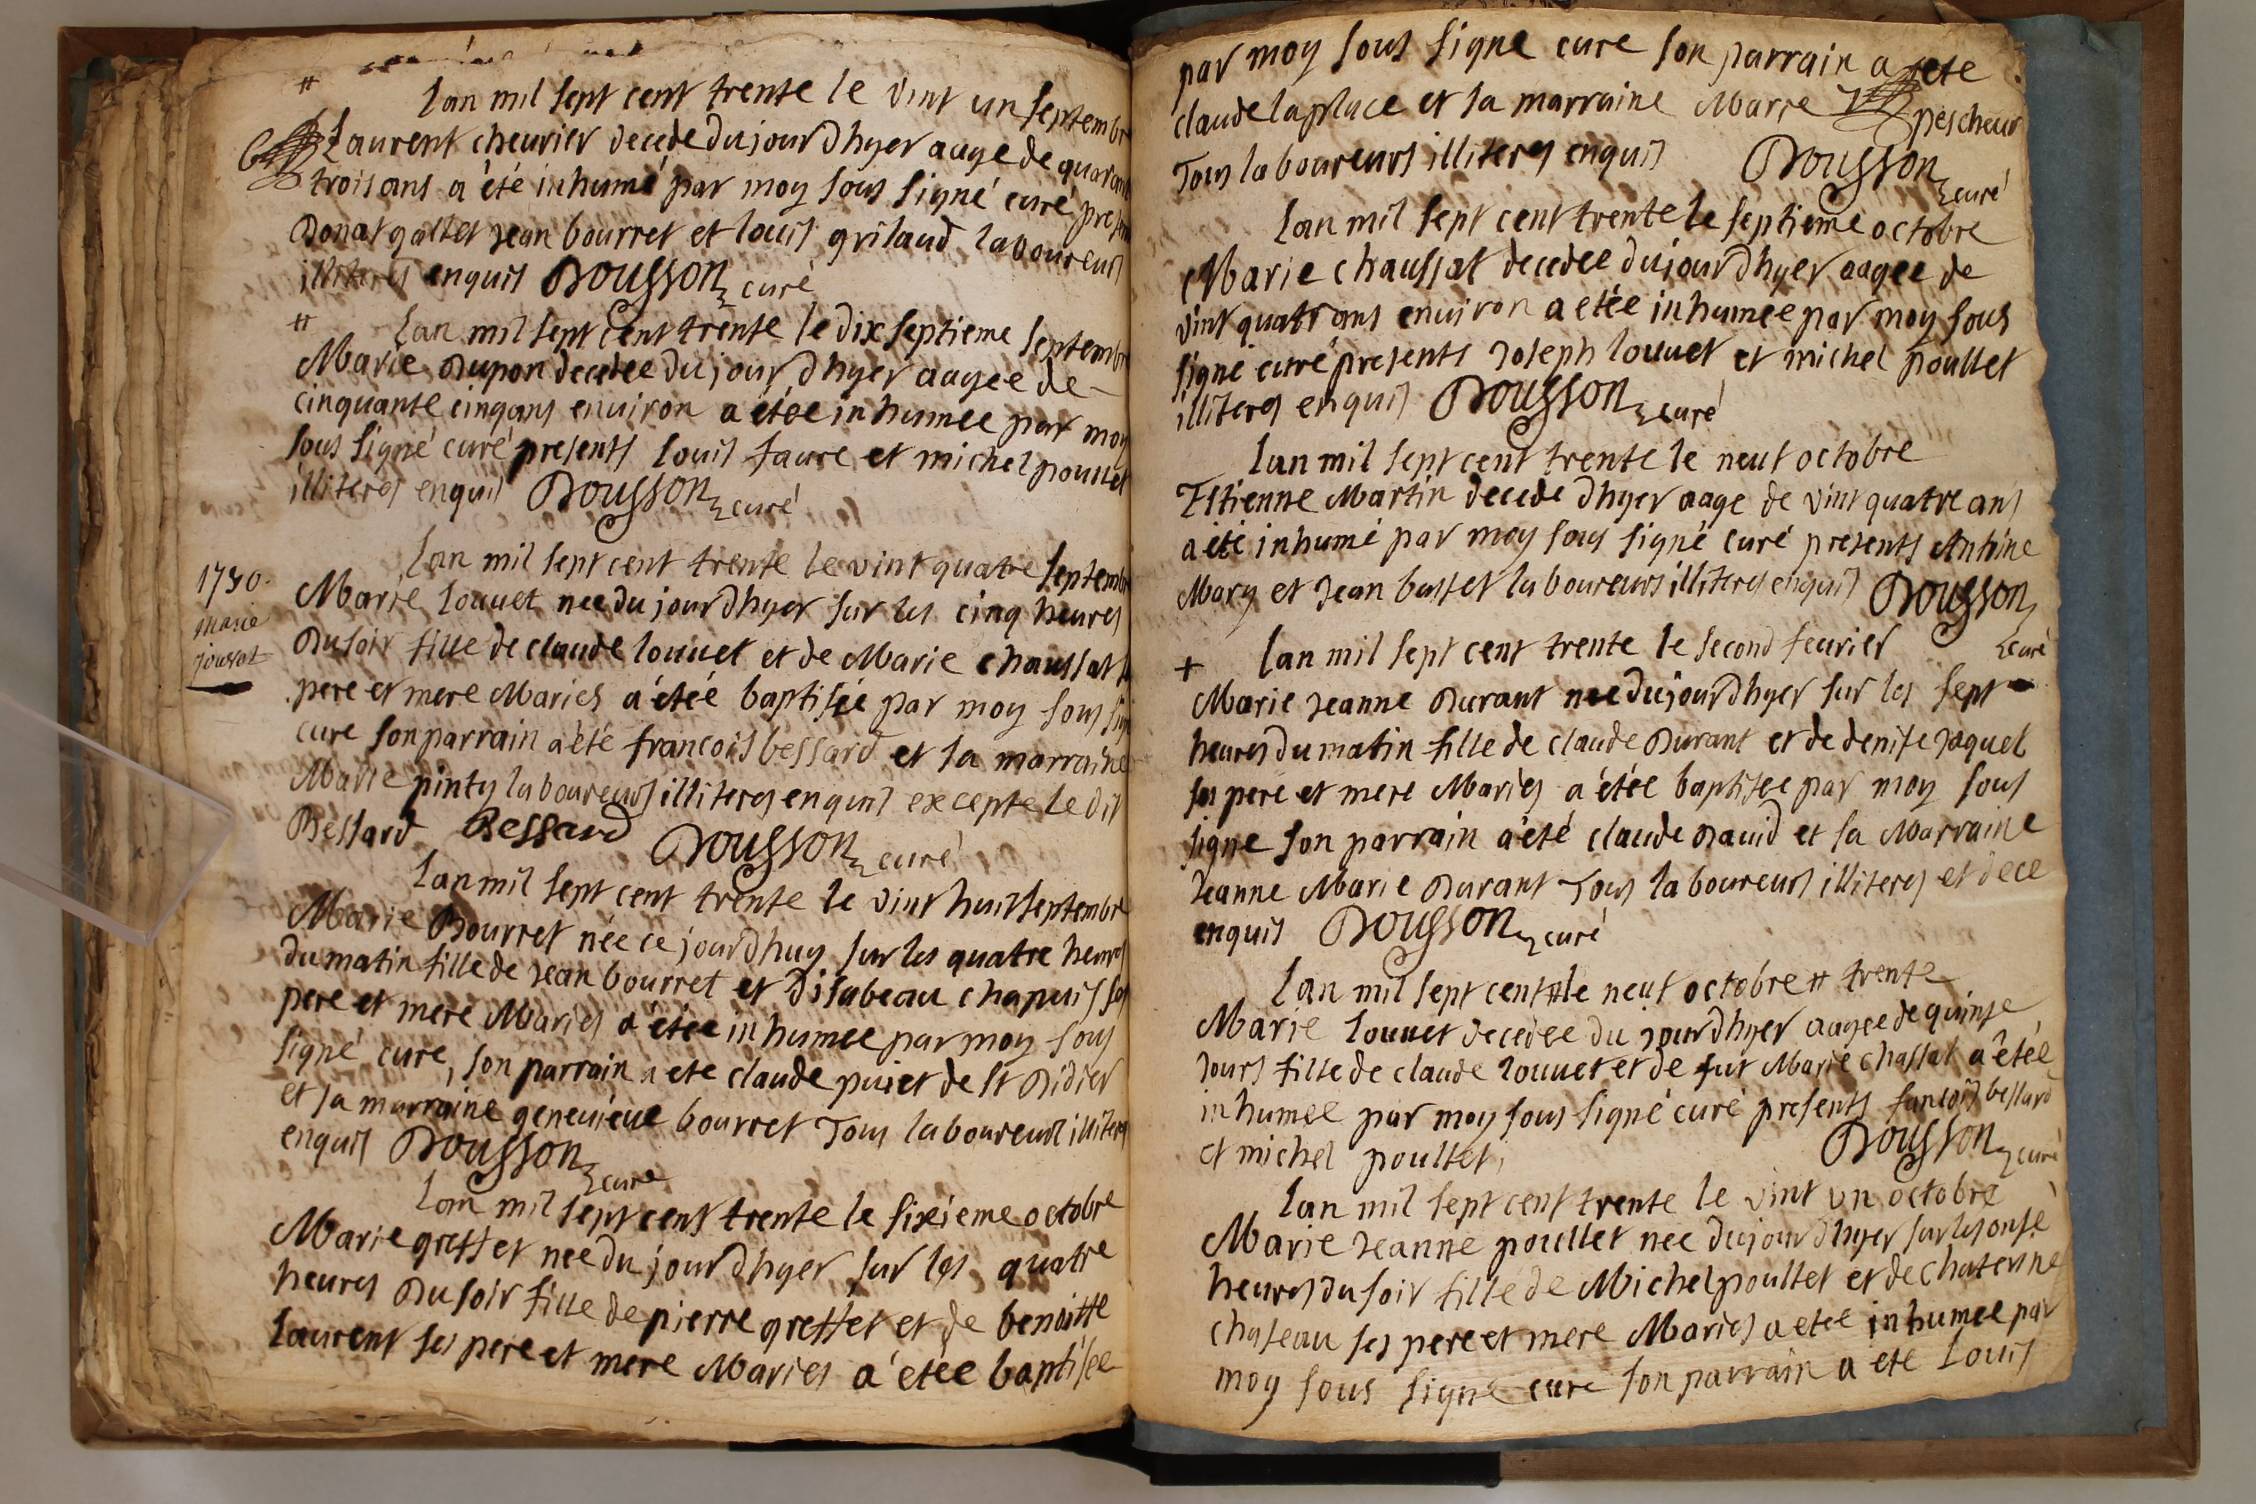 lan mil sept cent trente le vint un septembre
Laurent cheurier decede du jour dhyer aage de quarante
trois ans a été inhumé par moy sous signé curé presents
Donat gallet jean bourret et louis grilaud laboureurs
illiteres enquis Dousson curé
lan mil sept cent trente le dix septieme septembre
Marie Dupon decedee du jour dhyer aagee de
cinquante cinq ans enuiron a étée inhumee par moy
sous signé curé presents louis faure et michel poullet
illiteres enquis Dousson curé
lan mil sept cent trente le vint quatre septembre
1730. Marie louuet nee du jour dhyer sur les cinq heures
marie
du soir fille de claude louuet et de Marie chaussat
pere et mere Mariés a étéé baptisée par moy sous
cure son parrain a été francois bessard et sa marraine
Marie pinty laboureurs illiteres enquis excepte le dit
Bessard Bessard Dousson curé
lan mil sept cent trente le vint huit septembre
Marie Bourret née ce jourdhuy sur les quatre heures
du matin fille de jean bourret et disabeau chapuis ses
pere et mere Mariés a étée inhumee par moy sous
signé cure, son parrain a ete claude puiet de st Didier
et sa marraine geneuieue bourret Tous laboureurs illiteres
enquis Dousson curé
lan mil sept cent trente le sixieme octobre
Marie greffet nee du jour dhyer sur les quatre
heures du soir fille de pierre greffet et de benoitte
laurent ses pere et mere Mariés a étée baptisée
par moy sous signe cure son parrain a ete
claude laplace et sa marraine Marie pescheur
Tous laboureurs illiteres enquis Dousson curé
lan mil sept cent trente le septieme octobre
Marie chaussat decedee du jour dhyer aagee de
vint quatr ans enuiron a etée inhumee par moy sous
signé curé presents joseph louuet et michel poullet
illiteres enquis Dousson curé
lan mil sept cent trente le neuf octobre
Estienne Martin decede dhyer aage de vint quatre ans
a été inhumé par moy sous signé curé presents Antoine
Mary et jean basset laboureurs illiteres enquis Dousson
curé
+ lan mil sept cent trente le second feurier
Marie jeanne Durant nee du jour dhyer sur les sept
heures du matin fille de claude Durant et de denise jaquet
ses pere et mere Mariés a étée baptisée par moy sous
signe son parrain a été claude Dauid et sa Marraine
jeanne Marie Durant Tous laboureurs illiteres et de ce
enquis Dousson curé
lan mil sept cent # le neuf octobre # trente
Marie louuet decedee du jourdhyer aagee de quinse
jours fille de claude louuet et de fut Marie chassat a étée
inhumee par moy sous signé curé presents fancois bessard
et michel poullet, Dousson curé
lan mil sept cent trente le vint un octobre
Marie jeanne poullet nee du jour dhyer sur les onse
heures du soir fille de Michel poullet et de chaterine
chaseau ses pere et mere Mariés a etee inhumee par
moy sous signe cure son parrain a ete louis